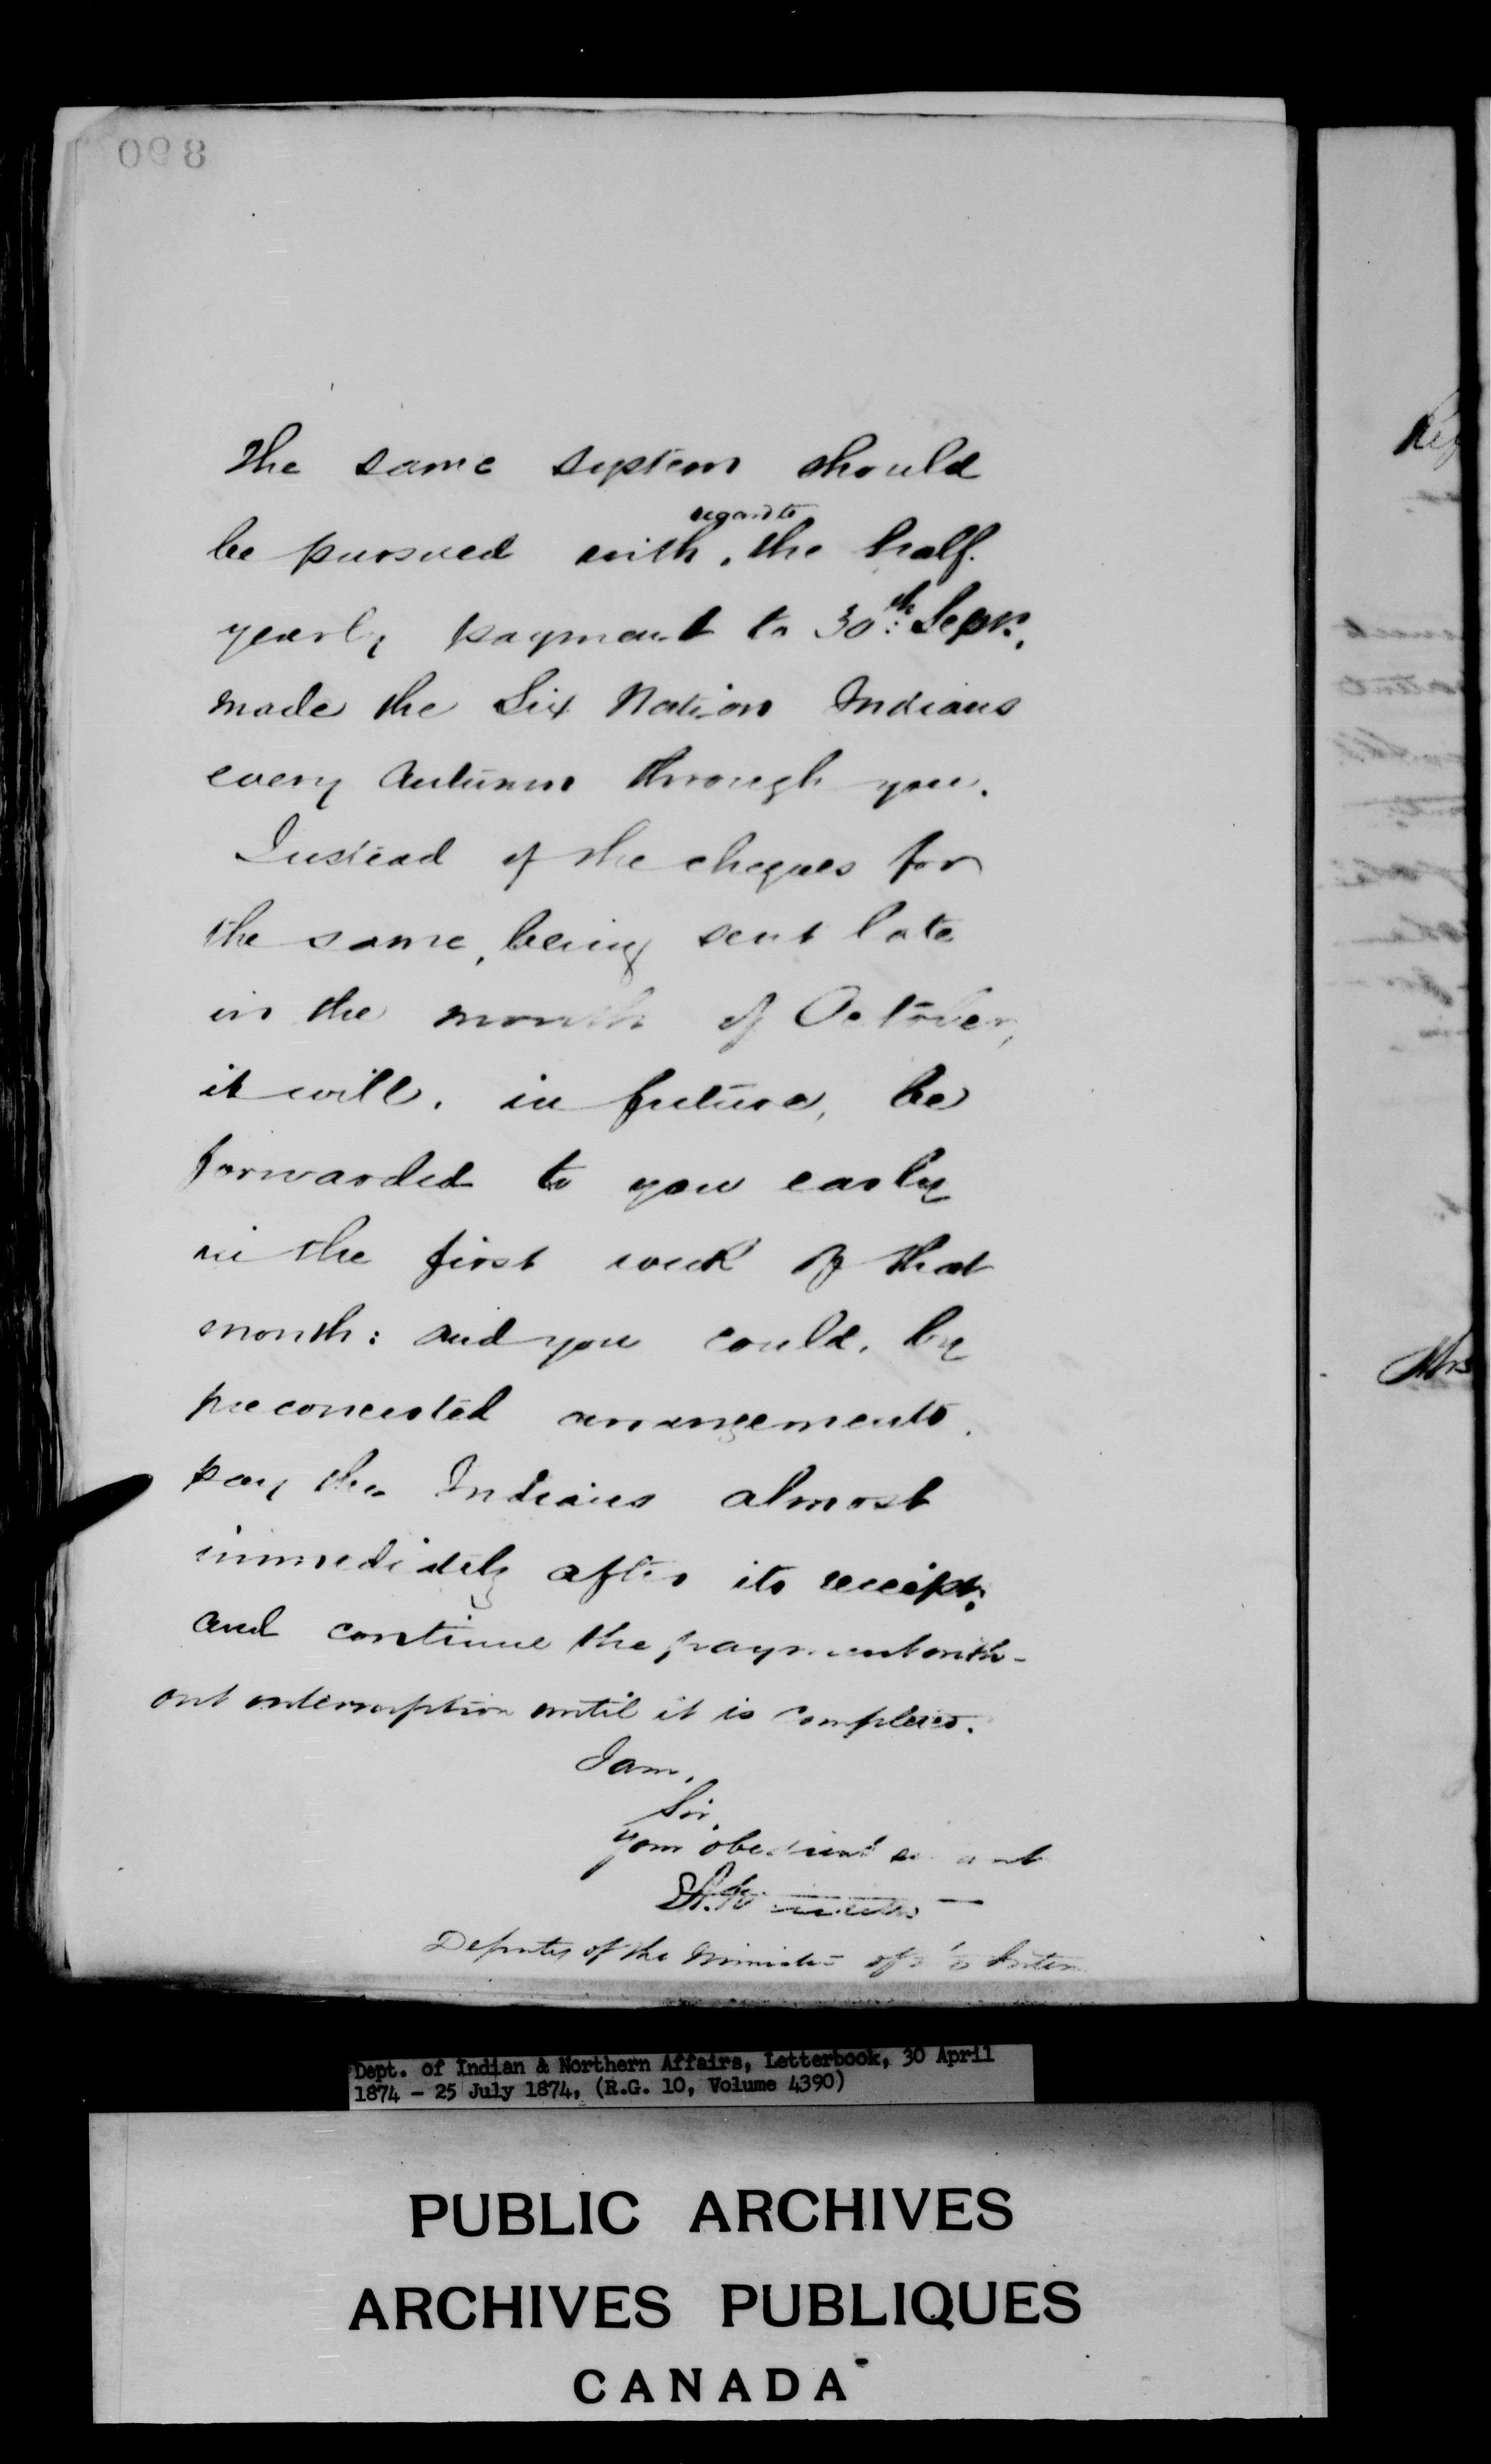 068
the same system should
regard to
be pursued with, the half.
yearly payment to 30th: Sepr.,
made the Six Nation Indians
every Autumn through you.
Instead of the cheques for
the same, being sent late
in the month of October,
it will, in future, be
forwarded to you early
in the first week of that
month: and you could, by
preconcerted arrangements,
pay the Indians almost
immediately after its receipt;
and continue the payment with-
out interruption until it is completed.
I am,
Sir,
Your obedient servant
Deputy of the Minister of the Interior
Dept. of Indian & Northern Affairs, Letterbook, 30 April
1874 - 25 July 1874, (R.G. 10, Volume 4390)
PUBLIC ARCHIVES
ARCHIVES PUBLIQUES
CANADA